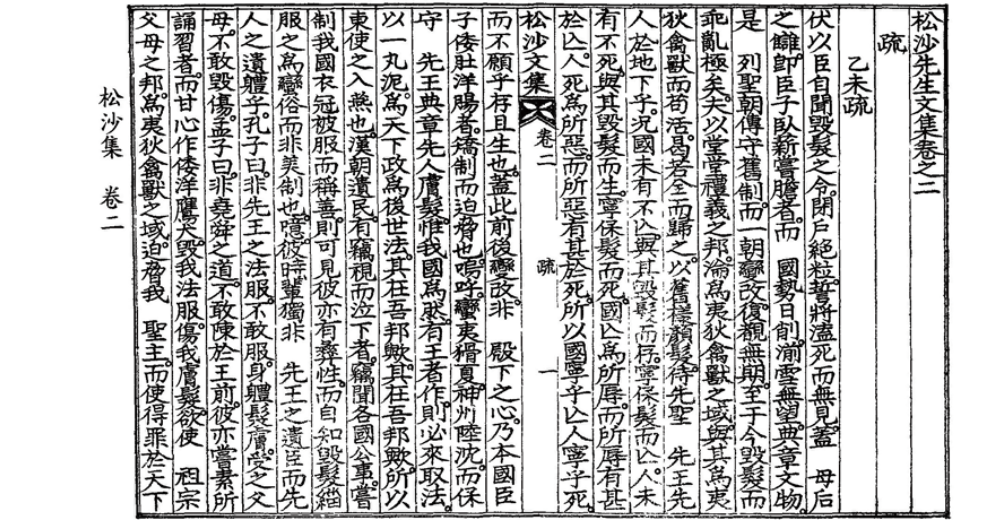 松沙先生文集卷之二
疏
乙未疏
伏以臣自聞毀髮之令閉戶絶粒誓將溘死而無見蓋 母后
之讎卽臣子臥薪嘗膽者而 國勢日創湔雪無望典章文物
是 列聖朝傳守舊制而一朝變改復覩無期至于今毀髮而
乖亂極矣夫以堂堂禮義之邦淪爲夷狄禽獸之域與其爲夷
狄禽獸而苟活曷若全而歸之以舊樣顏髮侍先聖 先王先
人於地下乎況國未有不亡與其毀髮而存寧保髮而亡人未
有不死與其毀髮而生寧保髮而死國亡爲所辱而所辱有甚
於亡人死爲所惡而所惡有甚於死所以國寧乎亡人寧乎死
松沙文集 卷二 疏 一
而不願乎存且生也蓋此前後變改非 殿下之心乃本國臣
子倭肚洋腸者矯制而迫脅也嗚呼蠻夷猾夏神州陸沈而保
守 先王典章先人膚髮惟我國爲然有王者作則必來取法
以一丸泥爲天下政爲後世法其在吾邦歟其在吾邦歟所以
東使之入燕也漢朝遺民有竊視而泣下者竊聞各國公事嘗
制我國衣冠被服而稱善則可見彼亦有彜性而自知毀髮緇
服之爲蠻俗而非美制也噫彼時輩獨非 先王之遺臣而先
人之遺體乎孔子曰非先王之法服不敢服身體髮膚受之父
母不敢毀傷孟子曰非堯舜之道不敢陳於王前彼亦嘗素所
誦習者而甘心作倭洋鷹犬毀我法服傷我膚髮欲使 祖宗
父母之邦爲夷狄禽獸之域迫脅我 聖主而使得罪於天下
松沙集 卷二